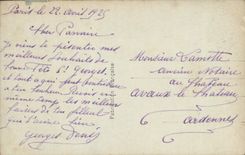 Paris le 22 avril 1925
Cher Parrain
Je viens te présenter mes
meilleurs souhaits de
bonne fête St Georges.
et tout ce qui peut contribuer
à ton bonheur. Reçois en
même temps les meilleurs
baisers de ton filleul
qui t'aime bien
Georges Denis
Monsieur Canette
ancien Notaire
au Château
Avaux le Château
Ardennes